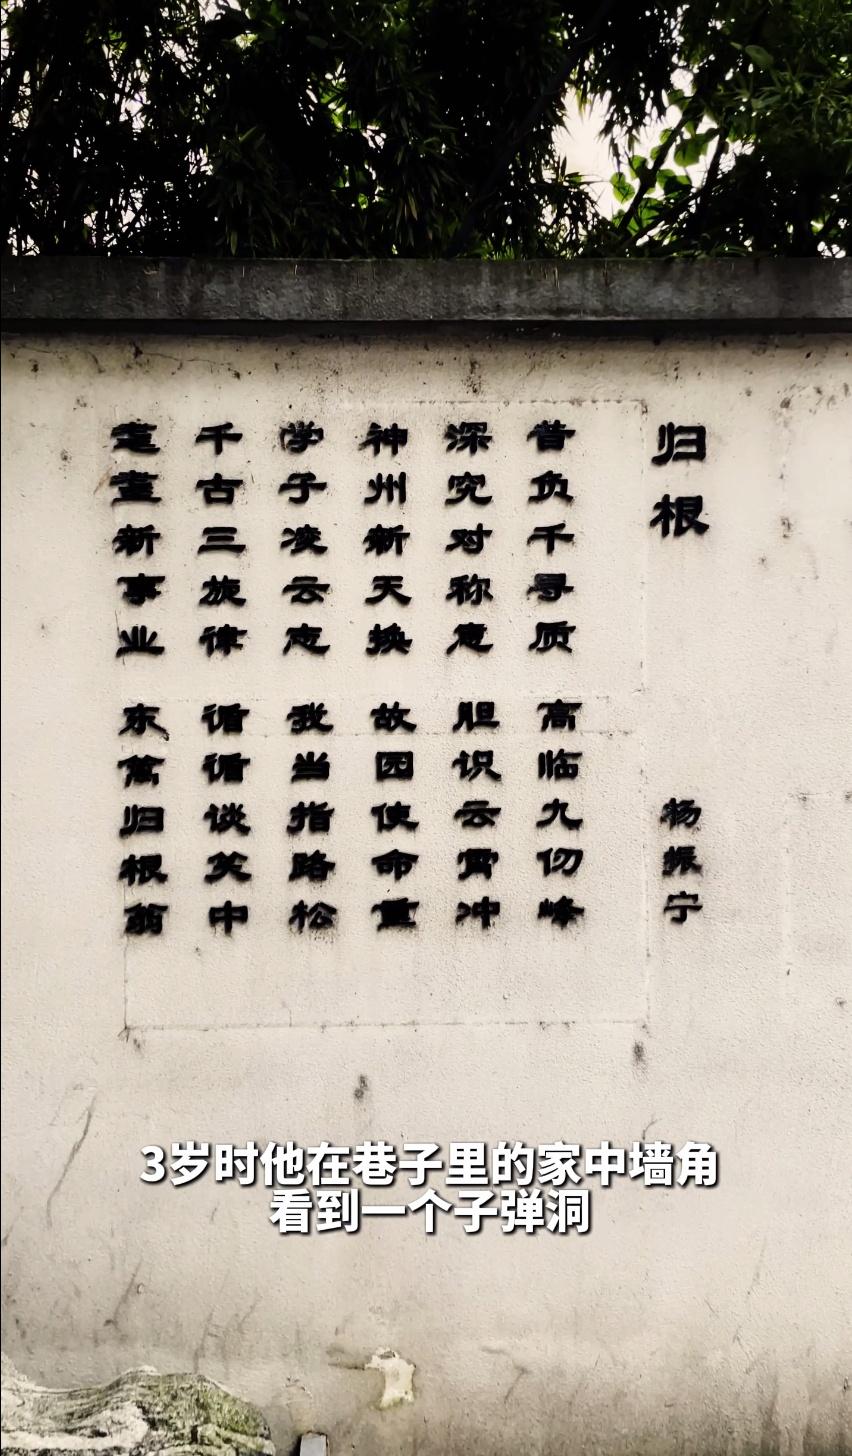 归根
杨振宁
昔负千寻质 高临九仞峰
深究对称意 胆识云霄冲
神州新天换 故园使命重
学子凌云志 我当指路松
千古三旋律 循循谈笑中
耄耋新事业 东篱归根翁
3岁时他在巷子里的家中墙角
看到一个子弹洞